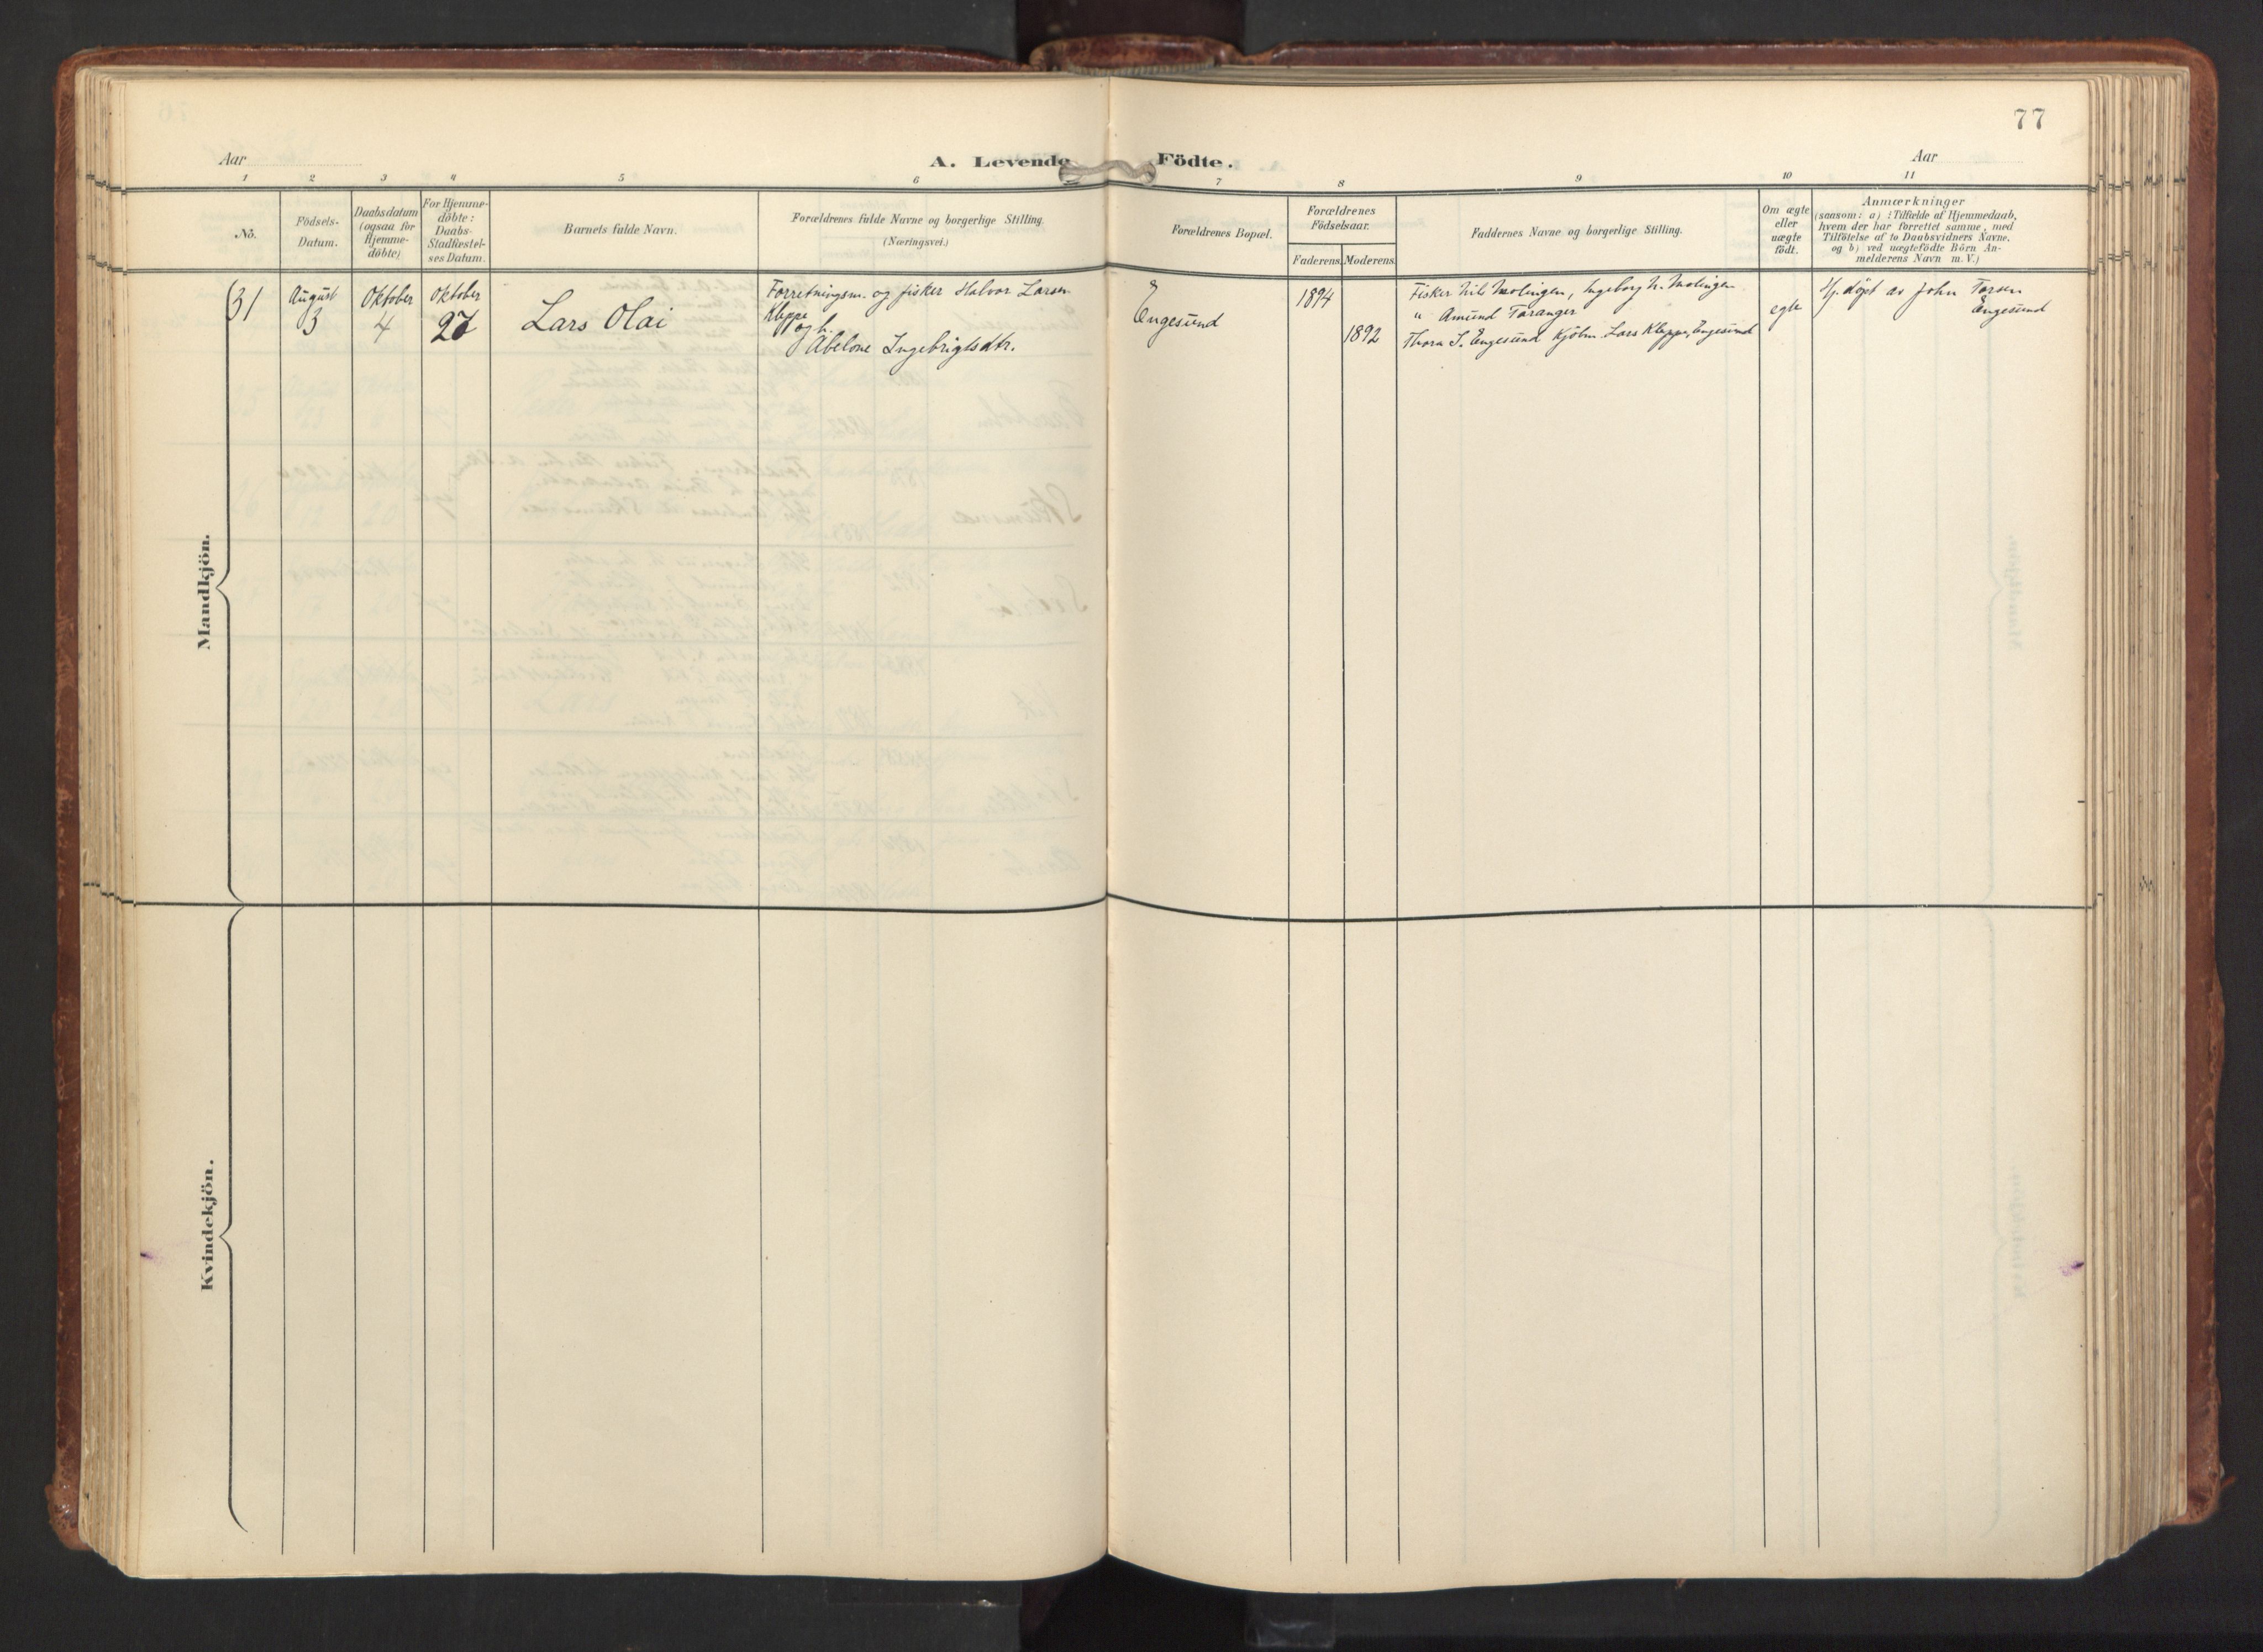 77
Aar
A. Levende Födte.
Aar
1 2 3 4 5 6 7 8 9 10 11
Nö.
Födsels-Datum.
Daabsdatum (ogsaa for Hjemme-döbte)
For Hjemme-döbte: Daabs-Stadfæstel-ses Datum.
Barnets fulde Navn.
Forældrenes fulde Navne og borgerlige Stilling.
(Næringsvei.)
Forældrenes Bopæl.
Forældrenes Födselsaar.
Faderens. Moderens.
Faddernes Navne og borgerlige Stilling.
Om ægte eller uægte födt.
Anmærkninger
(saasom: a) i Tilfælde af Hjemmedaab,
hvem der har forrettet samme, med
Tilföielse af to Daabsvidners Navne,
og b) ved uægtefödte Börn An-
melderens Navn m.V.)
Mandkjön.
31
August
3
Oktober
4
Oktober
27
Lars Olai
Forretningsm. og fisker Halvor Larsen
Kleppe
og h.
Abelone Ingebrigtsdtr.
Engesund
1894
1892
Fisker Nils Molingen, Ingeborg N. Molingen
" Amund Taranger
Thora I. Engesund Kjöbm. Lars Kleppe, Engesund
egte
Hj. döpt av John Tarsen
Engesund
Kvindekjön.